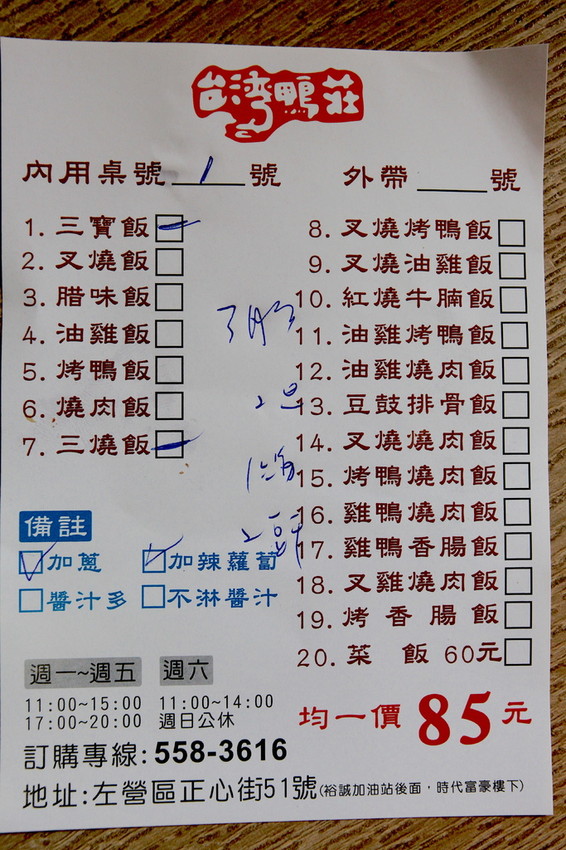 台灣鴨莊
內用桌號 1 號
外帶____號
1. 三寶飯
2. 叉燒飯
3. 腊味飯
4. 油雞飯
5. 烤鴨飯
6. 燒肉飯
7. 三燒飯
8. 叉燒烤鴨飯
9. 叉燒油雞飯
10. 紅燒牛腩飯
11. 油雞烤鴨飯
12. 油雞燒肉飯
13. 豆鼓排骨飯
14. 叉燒燒肉飯
15. 烤鴨燒肉飯
16. 雞鴨燒肉飯
17. 雞鴨香腸飯
18. 叉雞燒肉飯
19. 烤香腸飯
20. 菜 飯 60元
備註
加蔥 加辣蘿蔔
醬汁多 不淋醬汁
週一~週五 週六
11:00~15:00 11:00~14:00
17:00~20:00 週日公休
均一價 85元
訂購專線:558-3616
地址:左營區正心街51號(裕誠加油站後面，時代富豪樓下)